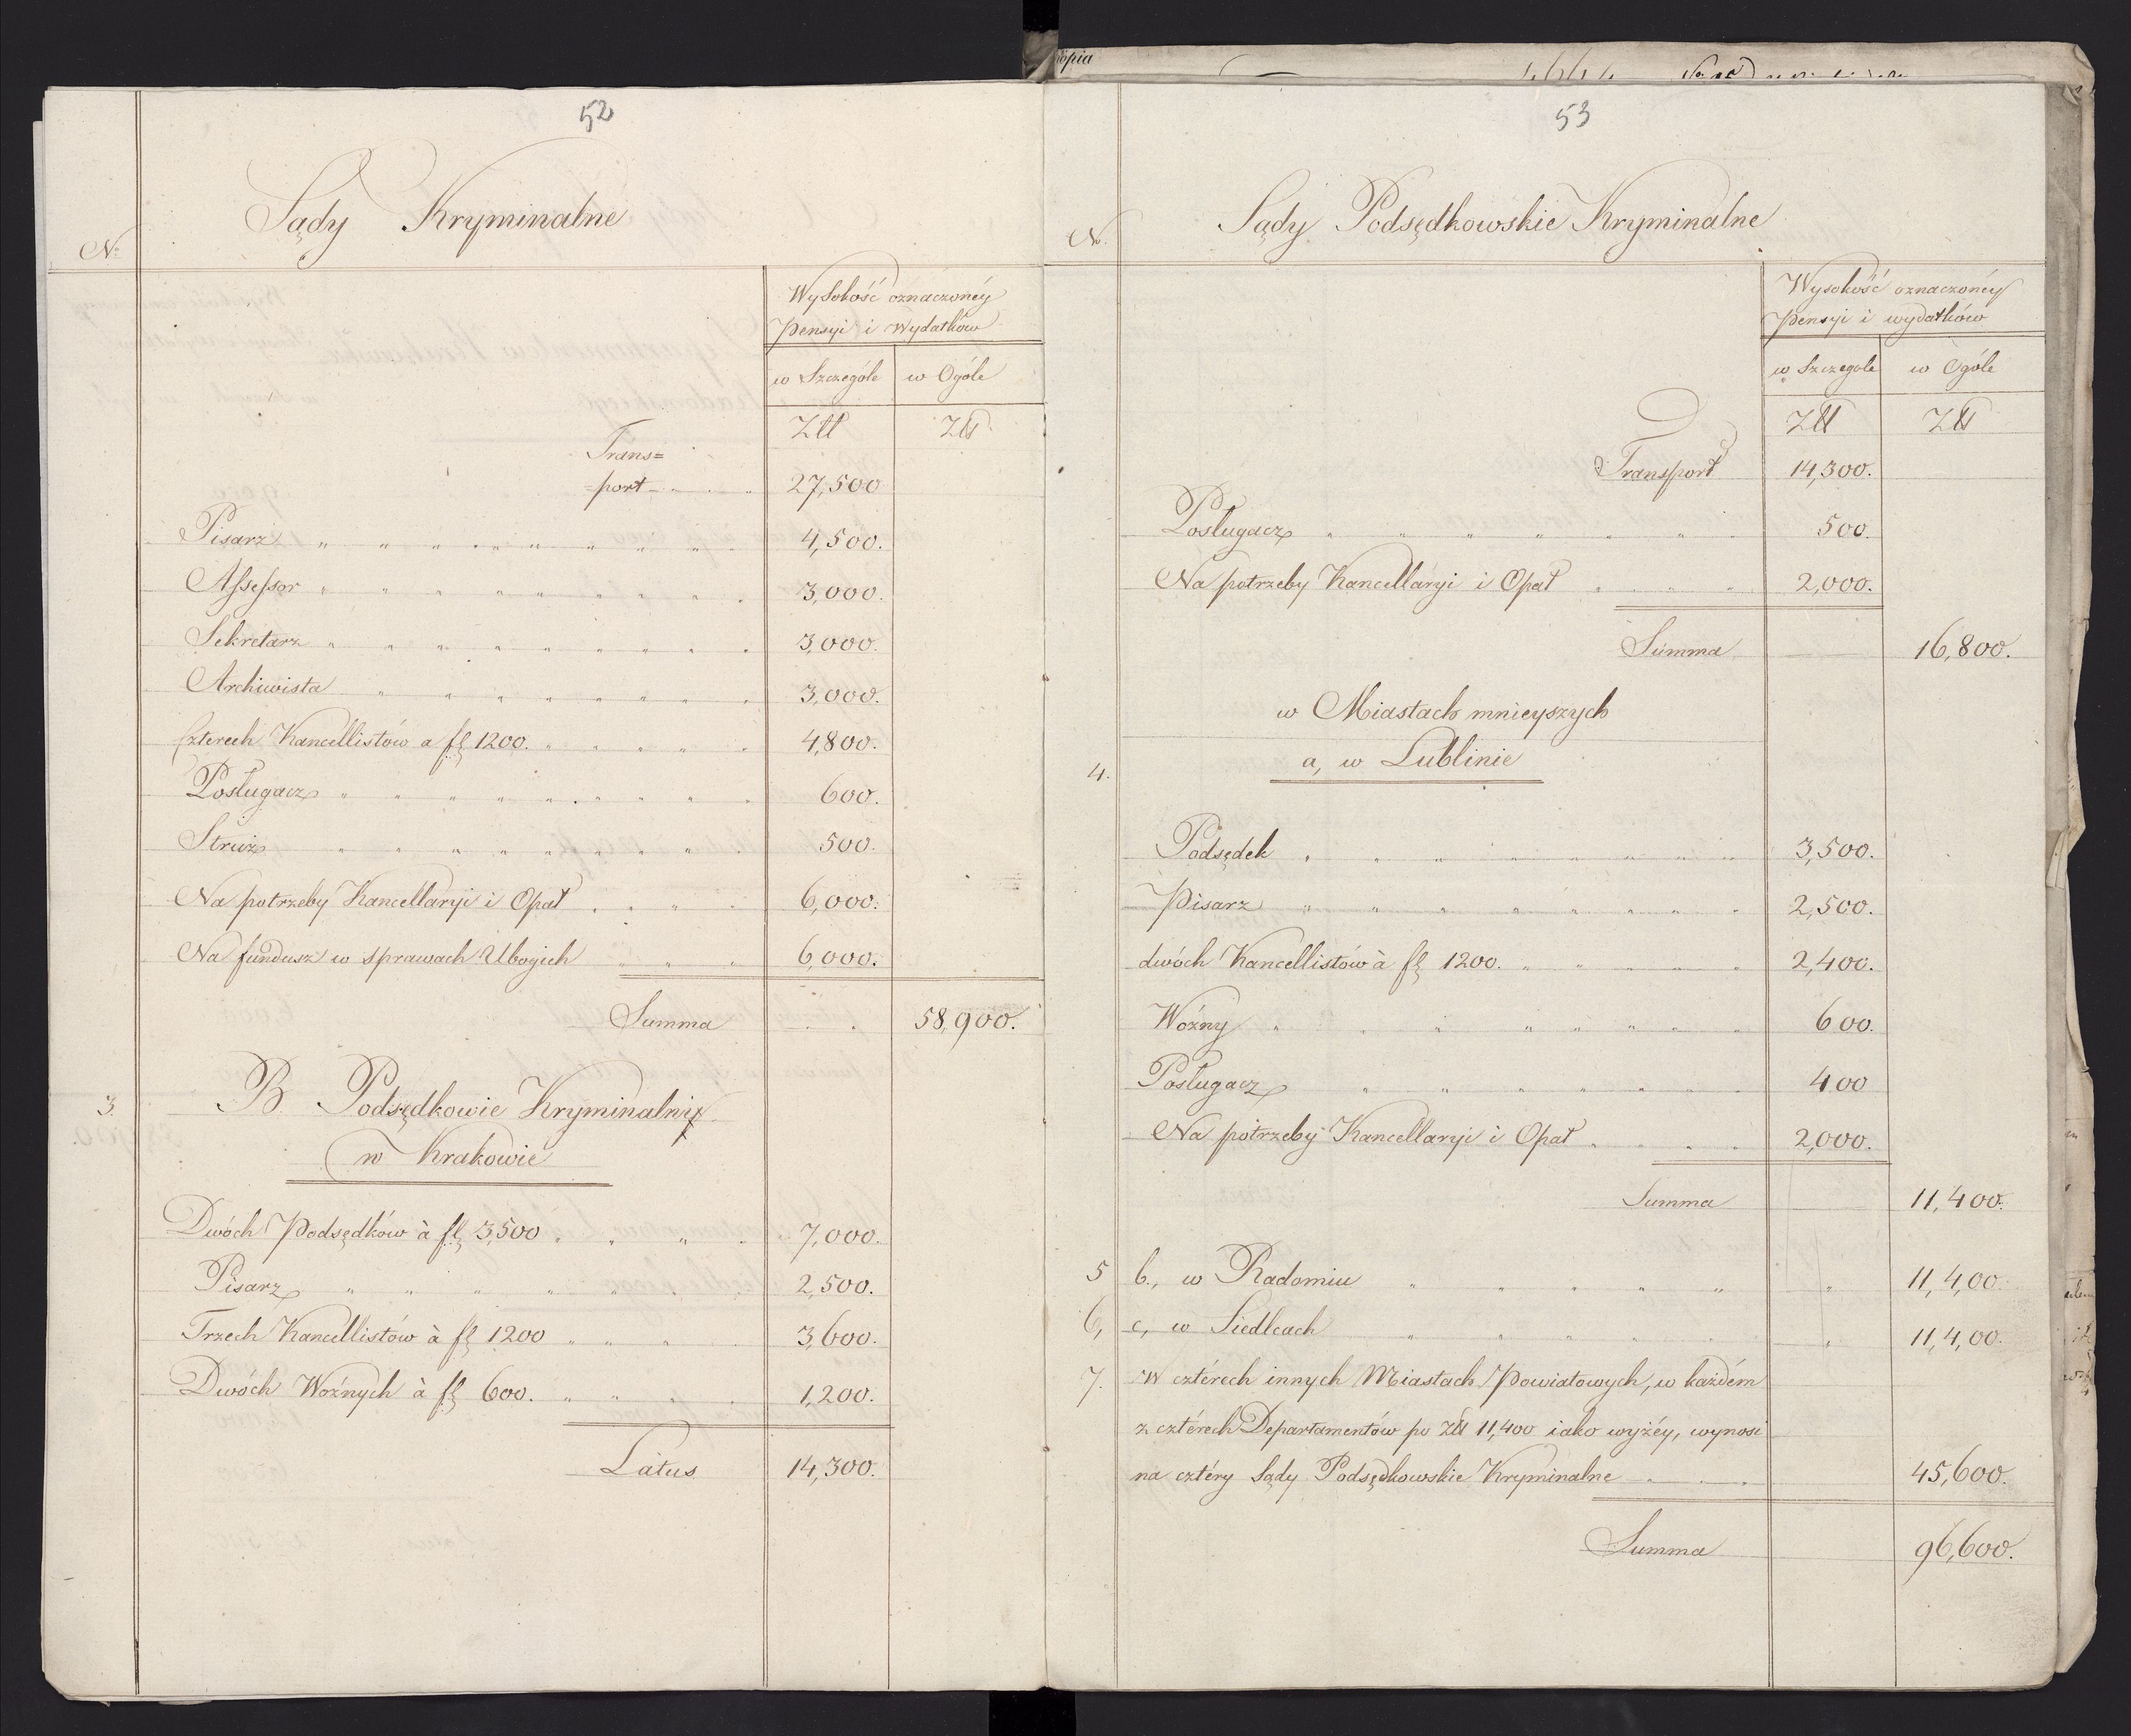 52
Sądy Kryminalne
No
Wysokość oznaczonéy
Pensyi i Wydatków
w Szczególe w Ogóle
Złł Złł
Trans=
=port 27,500
Pisarz 4,500.
Assessor 3,000.
Sekretarz 3,000.
Archiwista 3,000.
Czterech Kancellistów a fl 1200. 4,800.
Posługacz 600.
Struż 500.
Na potrzeby Kancellaryi i Opał 6,000.
Na fundusz w sprawach Ubogich 6,000.
Summa 58,900.
3. B. Podsędkowie Kryminalni
w Krakowie
Dwóch Podsędków à fl 3,500 7,000.
Pisarz 2,500.
Trzech Kancellistów à fl 1200 3,600.
Dwóch Woźnych à fl 600. 1,200.
Latus 14,300.
opia
53
Sądy Podsędkowskie Kryminalne
No.
Wysokość oznaczonéy
Pensyi i wydatków
w Szczegole w Ogóle
Złł Złł
Transport 14,300.
Posługacz 500.
Na potrzeby Kancellaryi i Opał 2,000.
Summa 16,800.
w Miastach mnieyszych
4. a, w Lublinie
Podsędek 3,500.
Pisarz 2,500.
dwóch Kancellistów à fl 1200. 2,400.
Woźny 600.
Posługacz 400
Na potrzeby Kancellaryi i Opał 2,000.
Summa 11,400.
5 b., w Radomiu 11,400.
6, c, w Siedlcach 11,400.
7. W cztérech innych Miastach Powiatowych, w każdém
z cztérech Departamentów po Złł 11,400 iako wyżéy, wynosi
na cztéry Sądy Podsędkowskie Kryminalne 45,600.
Summa 96,600.